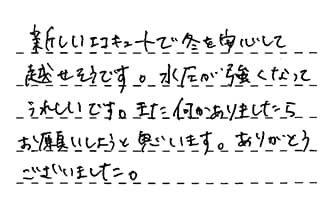 新しいエコキュートで冬を安心して
越せそうです。水圧が強くなって
うれしいです。また何かありましたら
お願いしようと思います。ありがとう
ございました。